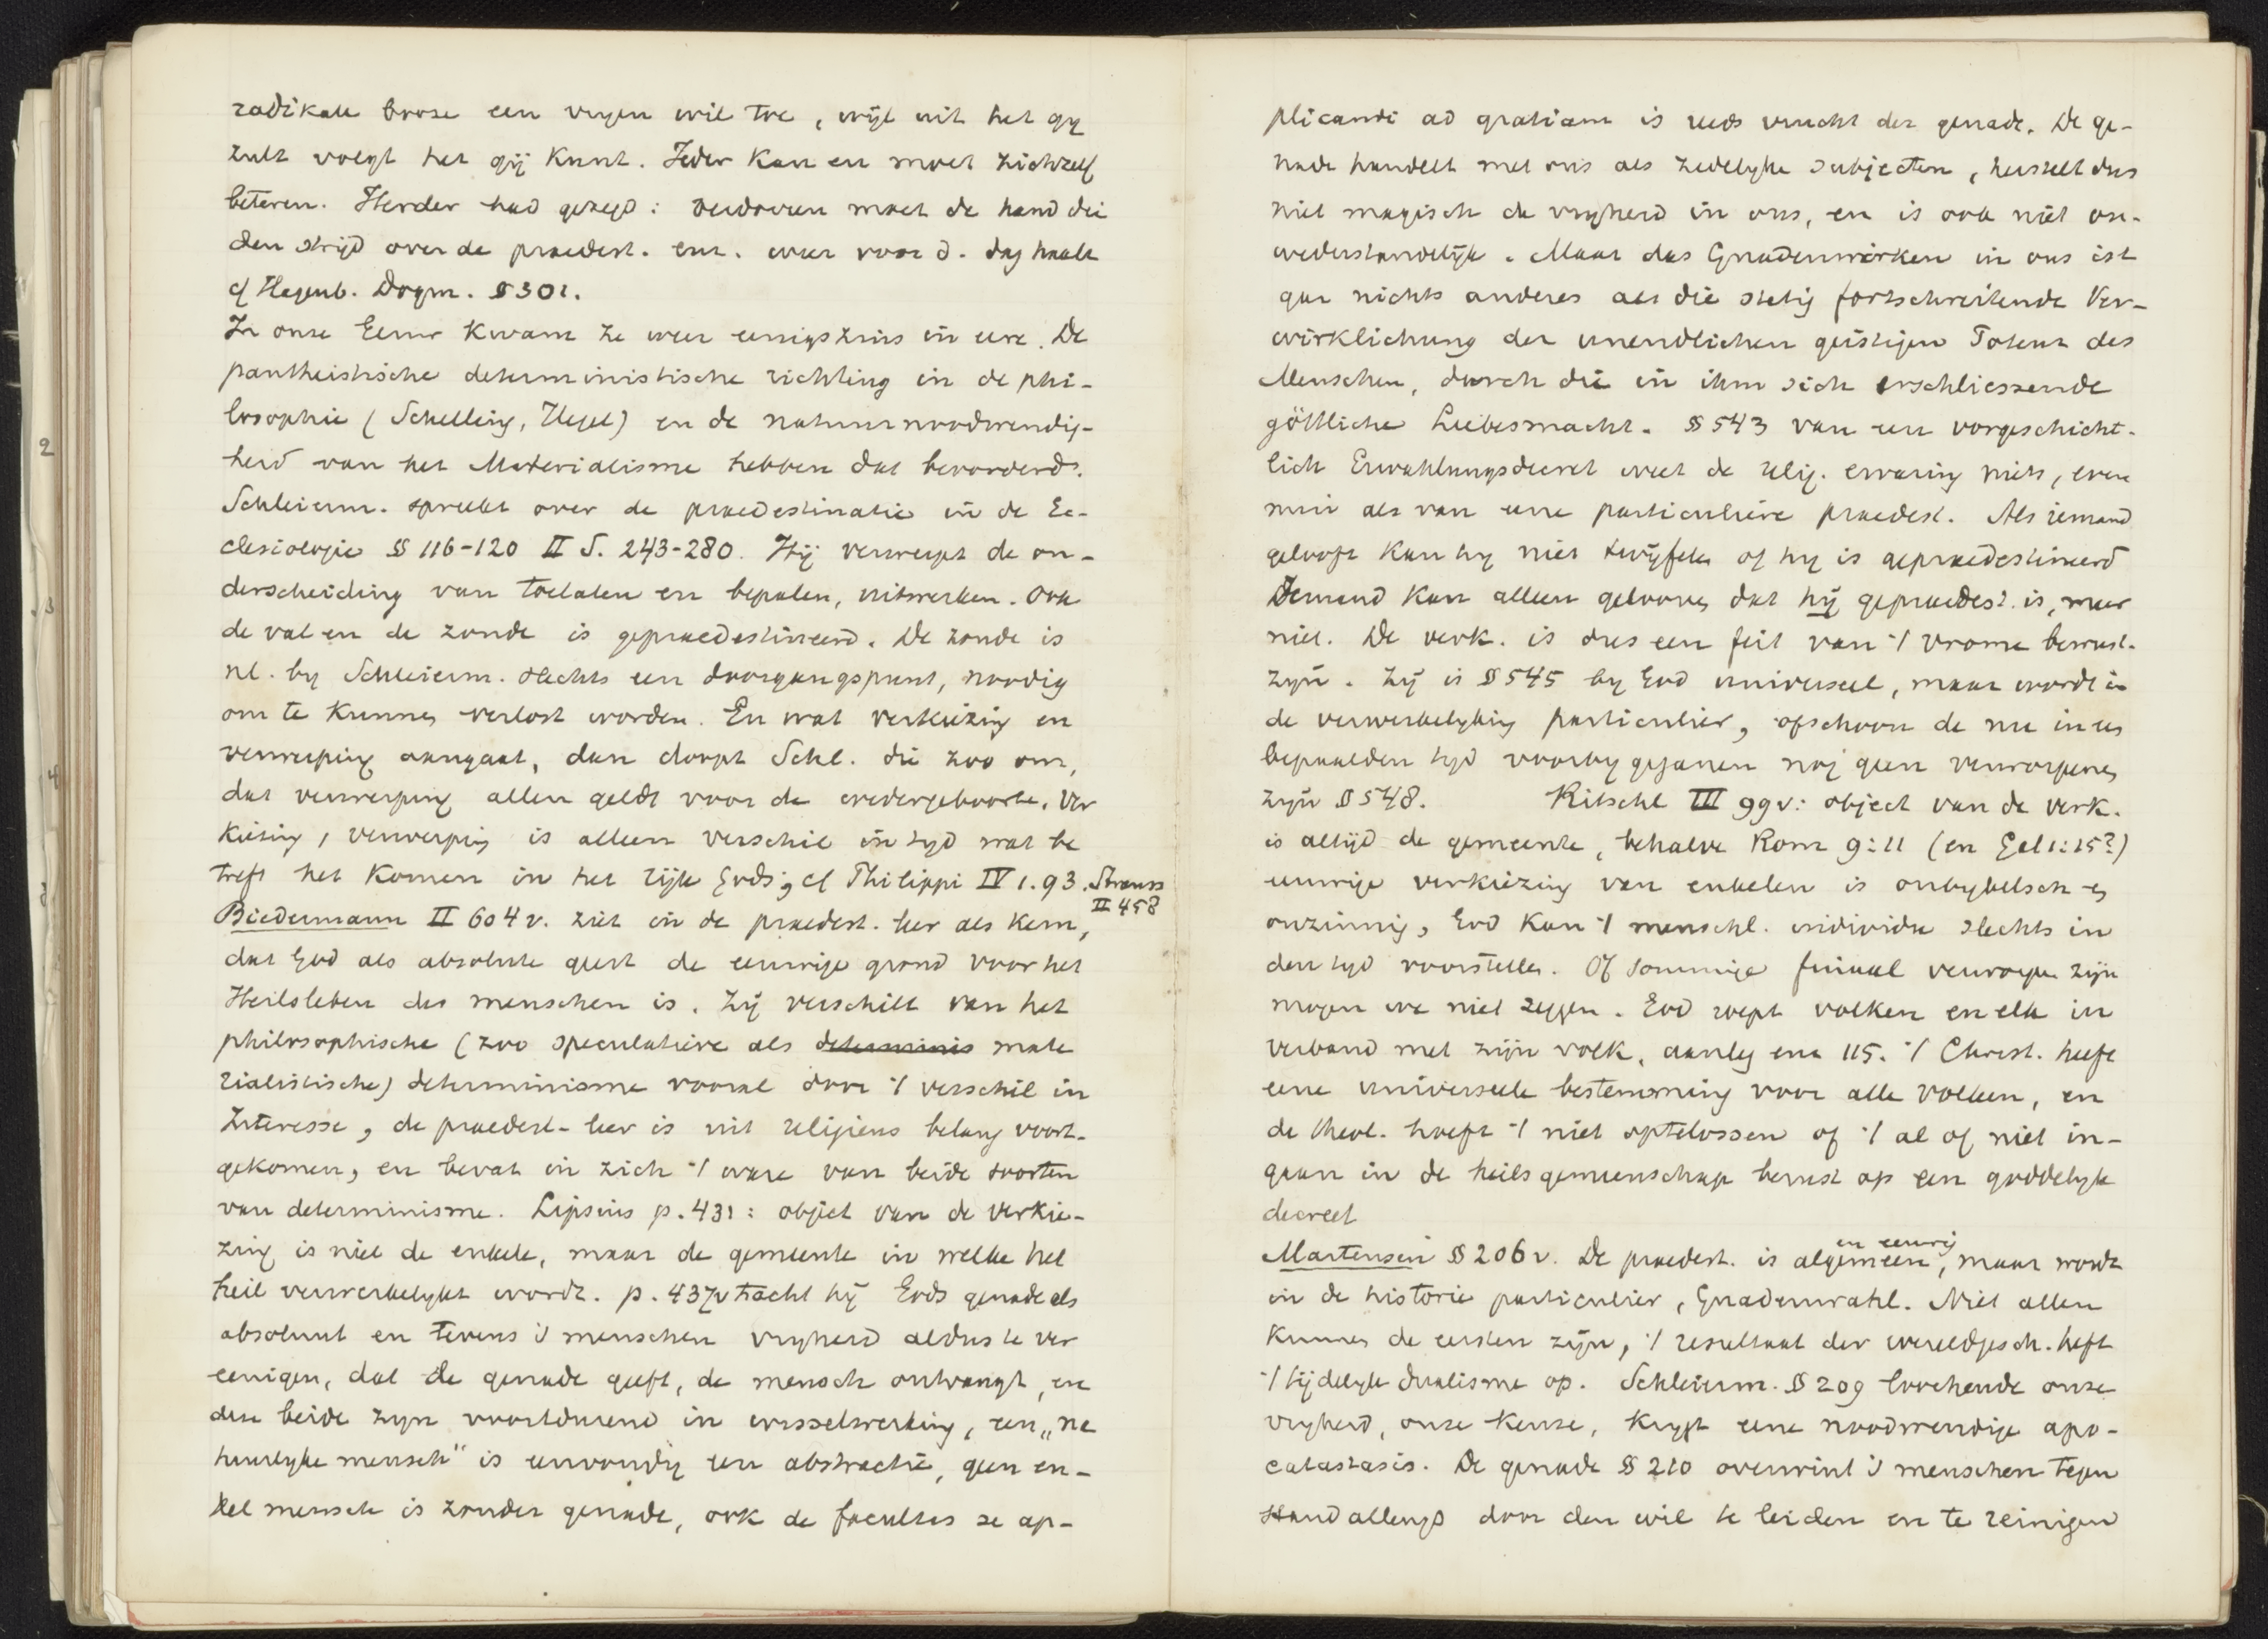 radikale booze een vryen wil toe, wijl uit het gy
zult volgt het gij kunt. Ieder kan en moet zichzelf
beteren. Herder had gezegd: verdorren moet de hand die
den strijd over de praedest. enz. weer voor d. dag haalt
cf Hagenb. Dogm. § 301.
In onze Eeuw kwam ze weer eenigszins in eere. De
pantheistische deterministische richting in de phi-
losophie (Schelling, Hegel) en de natuurnoodwendig-
heid van het Materialisme hebben dat bevorderd.
Schleierm. spreekt over de praedestinatie in de Ec-
clesiologie §§ 116-120 II S. 243-280. Hij verwerpt de on-
derscheiding van toelaten en bepalen, uitwerken. Ook
de val en de zonde is gepraedestineerd. De zonde is
nl. by Schleierm. slechts een doorgangspunt, noodig
om te kunnen verlost worden. En wat verkiezing en
verwerping aangaat, dan doopt Schl. die zoo om,
dat verwerping allen geldt voor de wedergeboorte. Ver
kiezing, verwerping is alleen verschil in tyd wat be
treft het komen in het rijk Gods; cf Philippi IV 1. 93. Strauss
II 458
Biedermann II 604 v. ziet in de praedest. leer als kern,
dat God als absolute geest de eeuwige grond voor het
Heilsleben des menschen is. Zij verschilt van het
philosophische (zoo speculatieve als determinis mate
rialistische) determinisme vooral door 't verschil in
Interesse, de praedest-leer is uit religieus belang voort-
gekomen, en bevat in zich 't ware van beide soorten
van determinisme. Lipsius p. 431: object van de verkie-
zing is niet de enkele, maar de gemeente in welke het
heil verwerkelykt wordt. p. 437v tracht hij Gods genade als
absoluut en tevens 's menschen vryheid aldus te ver
eenigen, dat de genade geeft, de mensch ontvangt, en
deze beide zyn voortdurend in wisselwerking, een „na
tuurlyke mensch" is eenvoudig een abstractie, geen en-
kel mensch is zonder genade, ook de facultas se ap-
plicandi ad gratiam is reeds vrucht der genade. De ge-
nade handelt met ons als zedelyke subjecten, herstelt dus
niet magisch de vryheid in ons, en is ook niet on-
wederstandelijk. Maar das Gnadenwirken in ons ist
gar nichts anderes als die stetig fortschreitende Ver-
wirklichung der unendlichen geistigen Potenz des
Menschen, durch die in ihm sich erschliessende
göttliche Liebesmacht. §§ 543 van een vorgeschicht-
lich Erwahlungsdecret weet de relig. ervaring niets, even
min als van eene particuliere praedest. Als iemand
gelooft kan hy niet twijfelen of hy is gepraedestineerd
Iemand kan alleen gelooven dat hij gepraedest. is, meer
niet. De verk. is dus een feit van 't vrome bewust-
zijn. Zij is § 545 by God universeel, maar wordt in
de verwerkelyking particulier, ofschoon de nu in een
bepaalden tyd voorbygeganen nog geen verworpenen
zijn § 548. Ritschl III 99v: object van de verk.
is altijd de gemeente, behalve Rom 9:11 (en Gal 1:15?)
eeuwige verkiezing van enkelen is onbybelsch en
onzinnig, God kan 't menschl. individu slechts in
den tyd voorstellen. Of sommige finaal verworpen zijn
mogen we niet zeggen. God roept volken en elk in
verband met zijn volk, aanleg enz 115. 't Christ. heeft
eene universeele bestemming voor alle volken, en
de theol. hoeft 't niet optelossen of 't al of niet in-
gaan in de heilsgemeenschap berust op een goddelyk
decreet
Martensen §§ 206v. De praedest. is algemeen en eeuwig, maar wordt
in de historie particulier, Gnadenwahl. Niet allen
kunnen de eersten zijn, 't resultaat der wereldgesch. heft
't tijdelyk dualisme op. Schleierm. §§ 209 loochende onze
vryheid, onze keuze, krygt eene noodwendige apo-
catastasis. De genade §§ 210 overwint 's menschen tegen
stand allengs door den wil te leiden en te reinigen